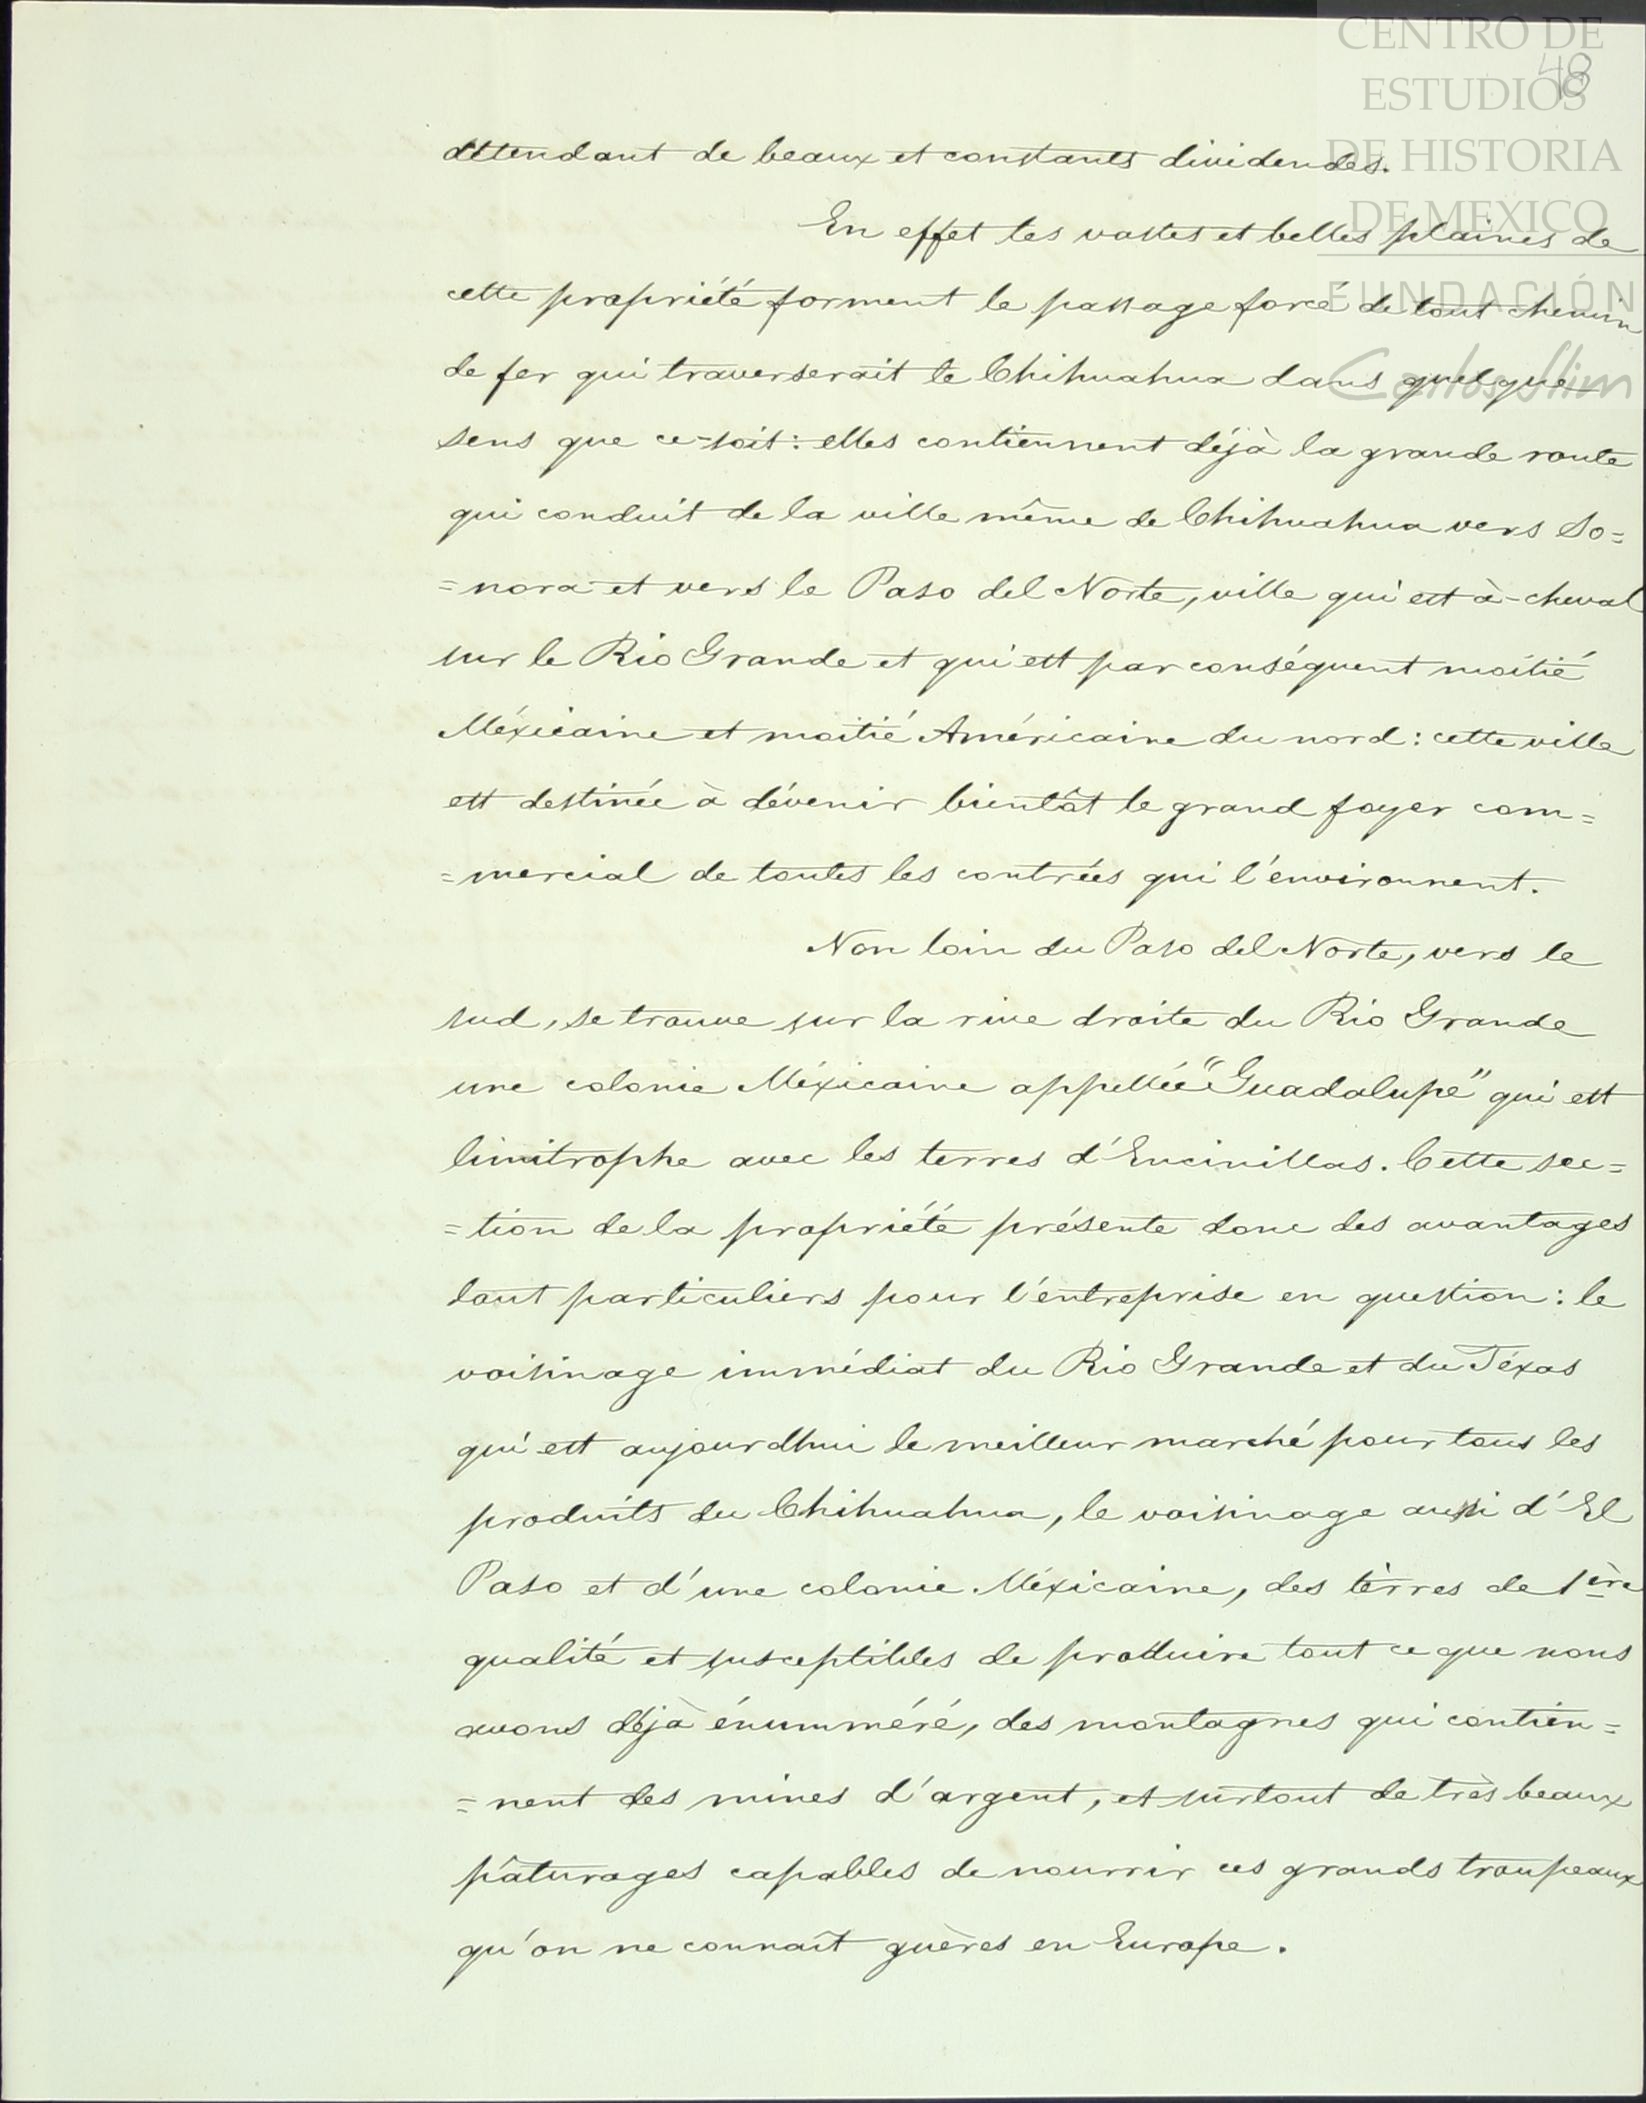 CENTRO DE
48
ESTUDIOS
DE HISTORIA
DE MEXICO
FUNDACIÓN
Carlos Slim
attendant de beaux et constants dividendes.
En effet les vastes et belles plaines de
cette propriété forment le passage forcé de tout chemin
de fer qui traverserait le Chihuahua dans quelque
sens que ce-soit: elles contiennent déjà la grande route
qui conduit de la ville même de Chihuahua vers So=
=nora et vers le Paso del Norte, ville qui est à-cheval
sur le Rio Grande et qui est par conséquent moitié
Méxicaine et moitié Américaine du nord: cette ville
est destinée à dévenir bientôt le grand foyer com=
=mercial de toutes les contrées qui l'environnent.
Non loin du Paso del Norte, vers le
sud, se trouve sur la rive droite du Rio Grande
une colonie Méxicaine appellée "Guadalupe" qui est
limitrophe avec les terres d'Encinillas. Cette sec=
=tion de la propriété présente donc des avantages
tout particuliers pour l'entreprise en question: le
voisinage immédiat du Rio Grande et du Téxas
qui est aujourdhui le meilleur marché pour tous les
produits du Chihuahua, le voisinage aussi d'El
Paso et d'une colonie Méxicaine, des tèrres de 1ère
qualité et susceptibles de produire tout ce que nous
avons déjà énumméré, des montagnes qui contien=
=nent des mines d'argent, et surtout de très beaux
pâturages capables de nourrir ces grands troupeaux
qu'on ne connaît guères en Europe.